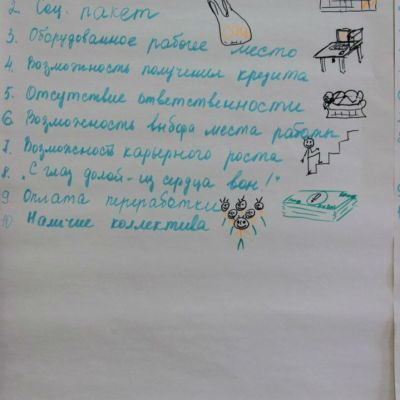 2. Соц. пакет
3. Оборудованное рабочее место
4. Возможность получения кредита
5. Отсутствие ответственности
6. Возможность выбора места работы
7. Возможность карьерного роста
8. „С глаз долой - из сердца вон!"
9. Оплата переработки
10. Наличие коллектива